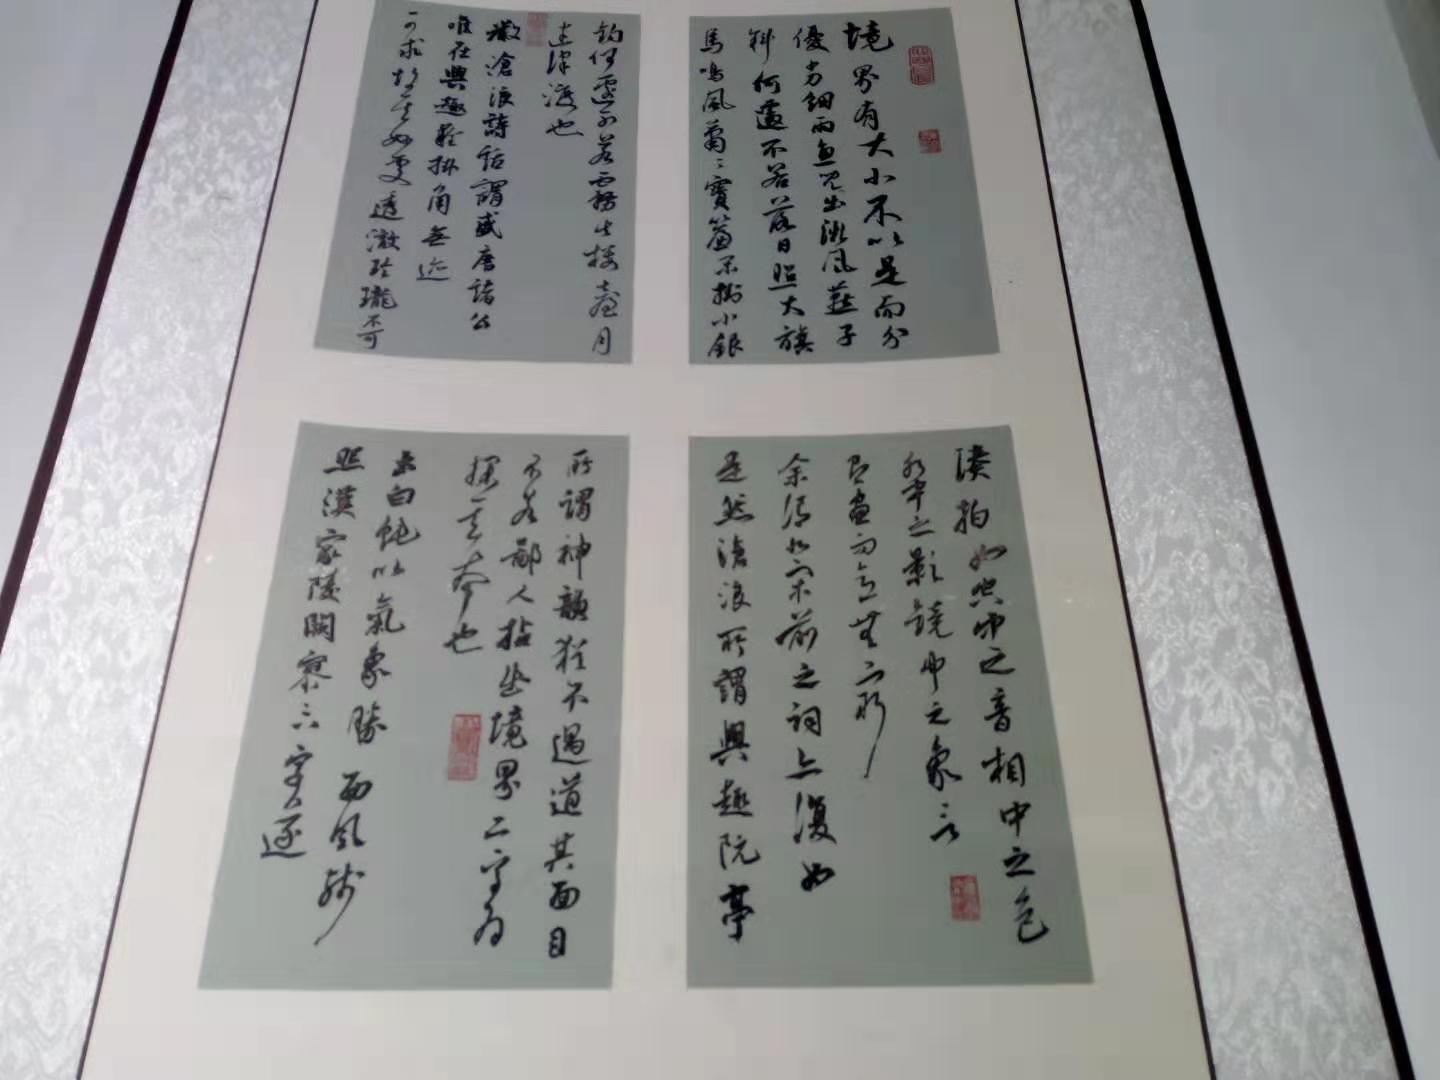 境界有大小不以是而分
優劣細雨魚兒出微風燕子
斜何遽不若落日照大旗
馬鳴風蕭〻寶簾閑掛小銀
鈎何遽不若霧失樓臺月
迷津渡也
嚴滄浪詩話謂盛唐諸公
唯在興趣羚掛角無迹
可求故其妙處透澈玲瓏不可
湊拍如空中之音相中之色
水中之影鏡中之象言
有盡而意無窮
余謂北宋前之詞亦復如
是然滄浪所謂興趣阮亭
所謂神韻猶不過道其面目
不若鄙人拈出境界二字為
探其本也
太白純以氣象勝西風殘
照漢家陵闕寥寥八字遂